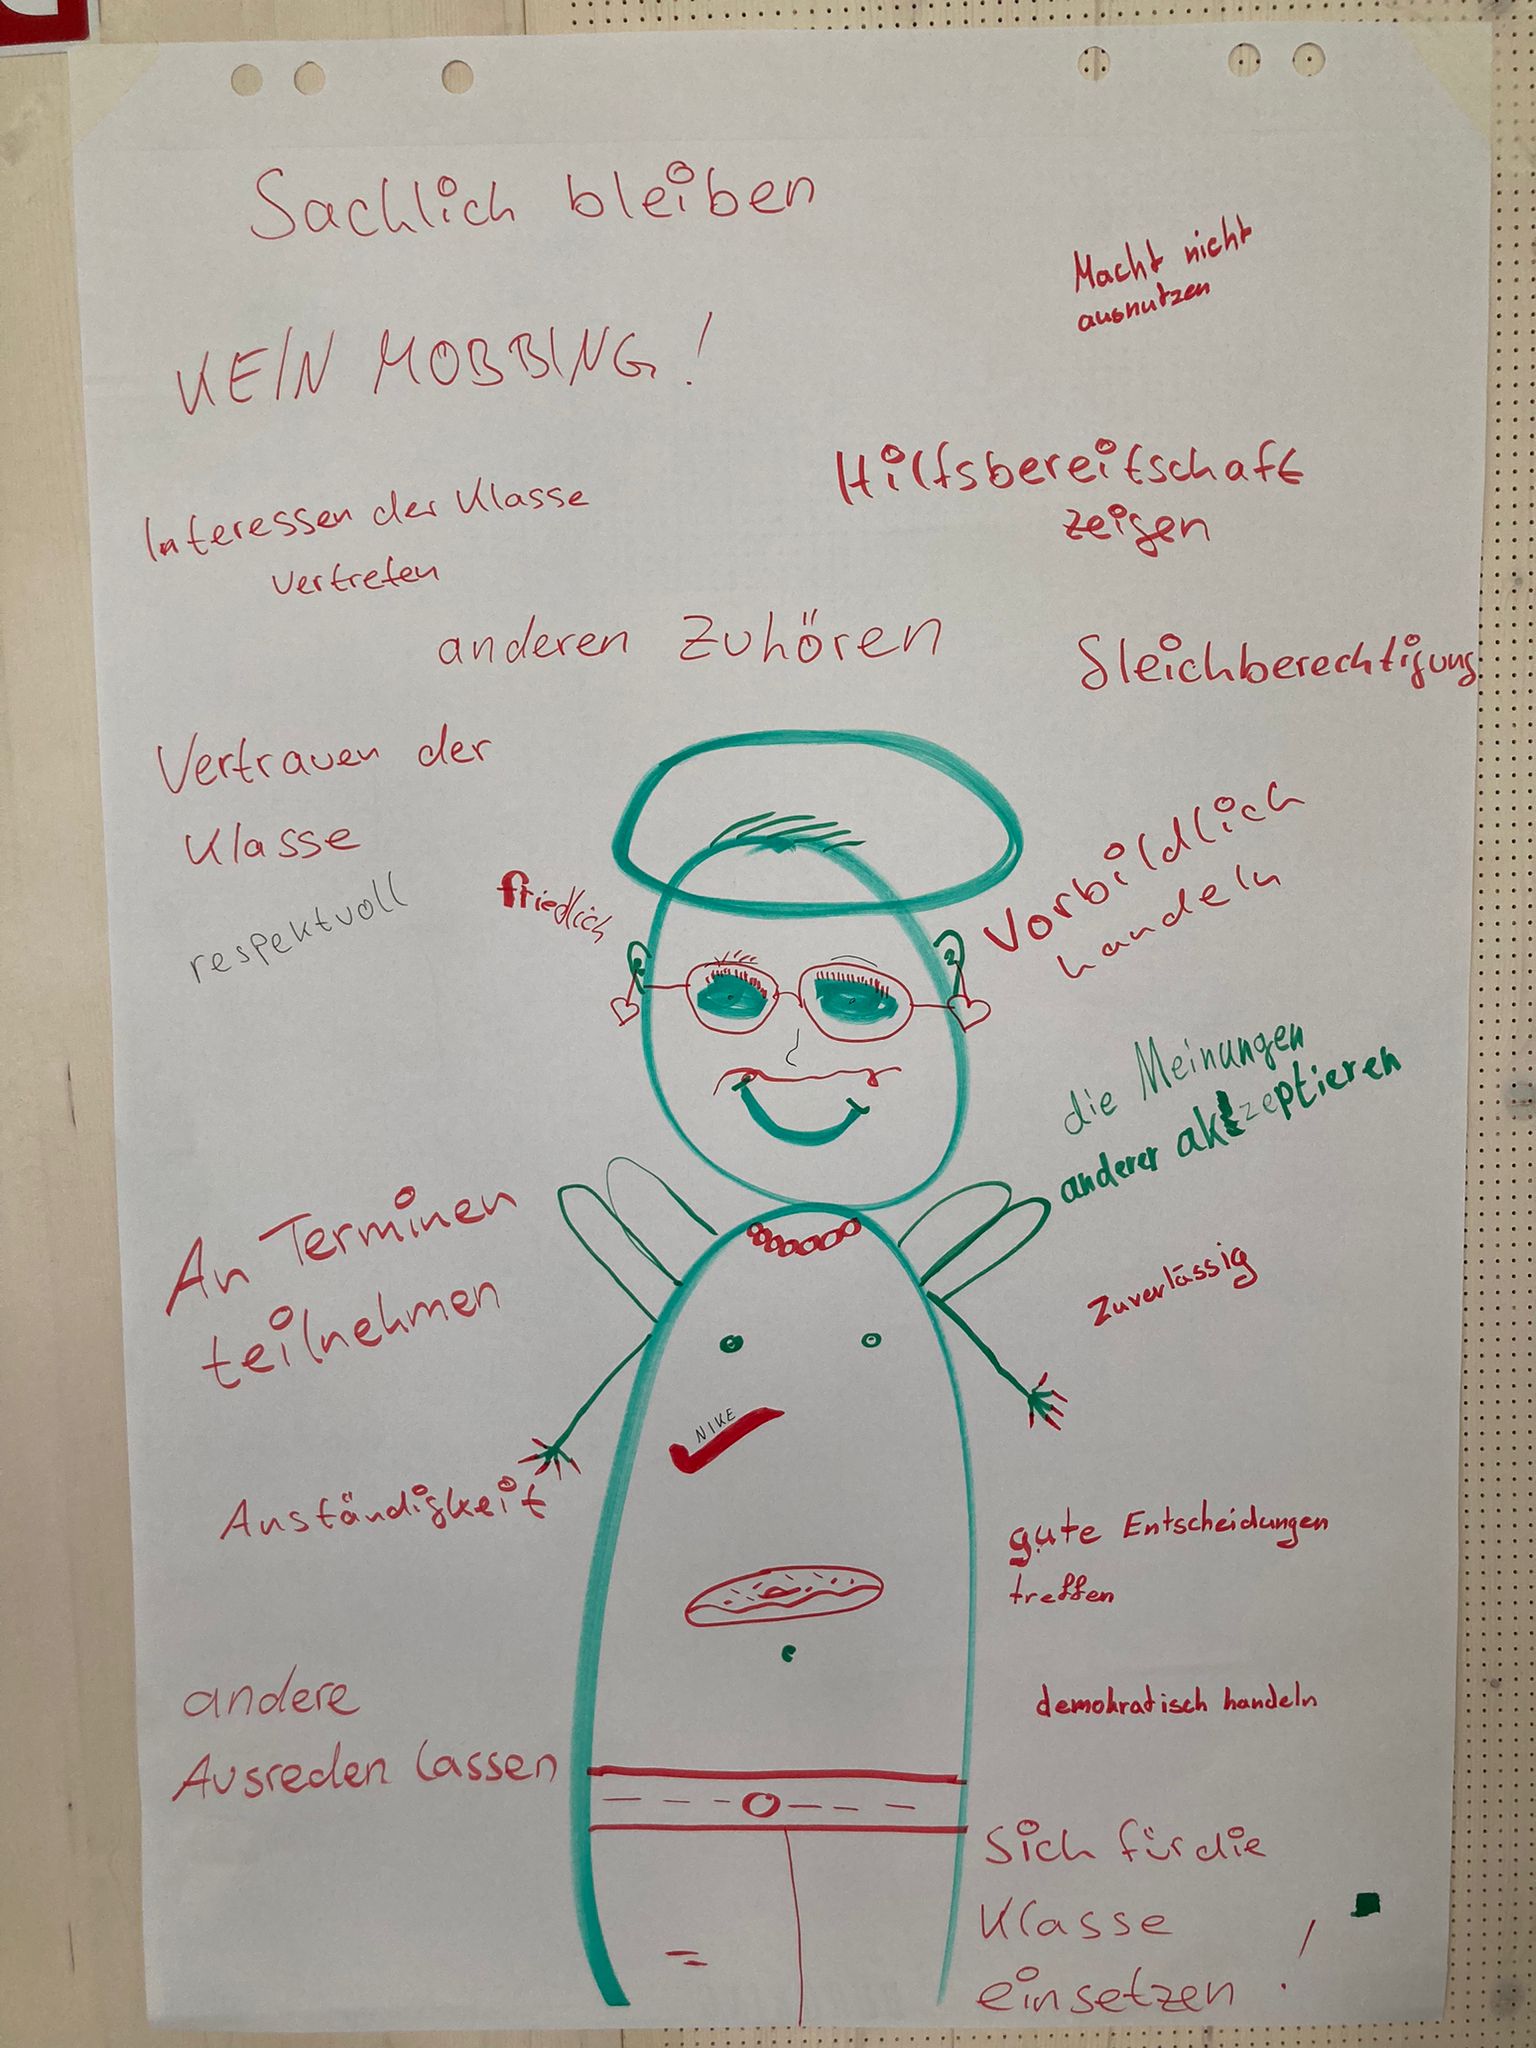 Sachlich bleiben
Macht nicht
ausnutzen
KEIN MOBBING!
Hilfsbereitschaft
zeigen
Interessen der Klasse
vertreten
anderen zuhören
Gleichberechtigung
Vertrauen der
Klasse
respektvoll
friedlich
Vorbildlich
handeln
die Meinungen
anderer akzeptieren
An Terminen
teilnehmen
zuverlässig
NIKE
Anständigkeit
gute Entscheidungen
treffen
andere
Ausreden lassen
demokratisch handeln
Sich für die
Klasse
einsetzen!